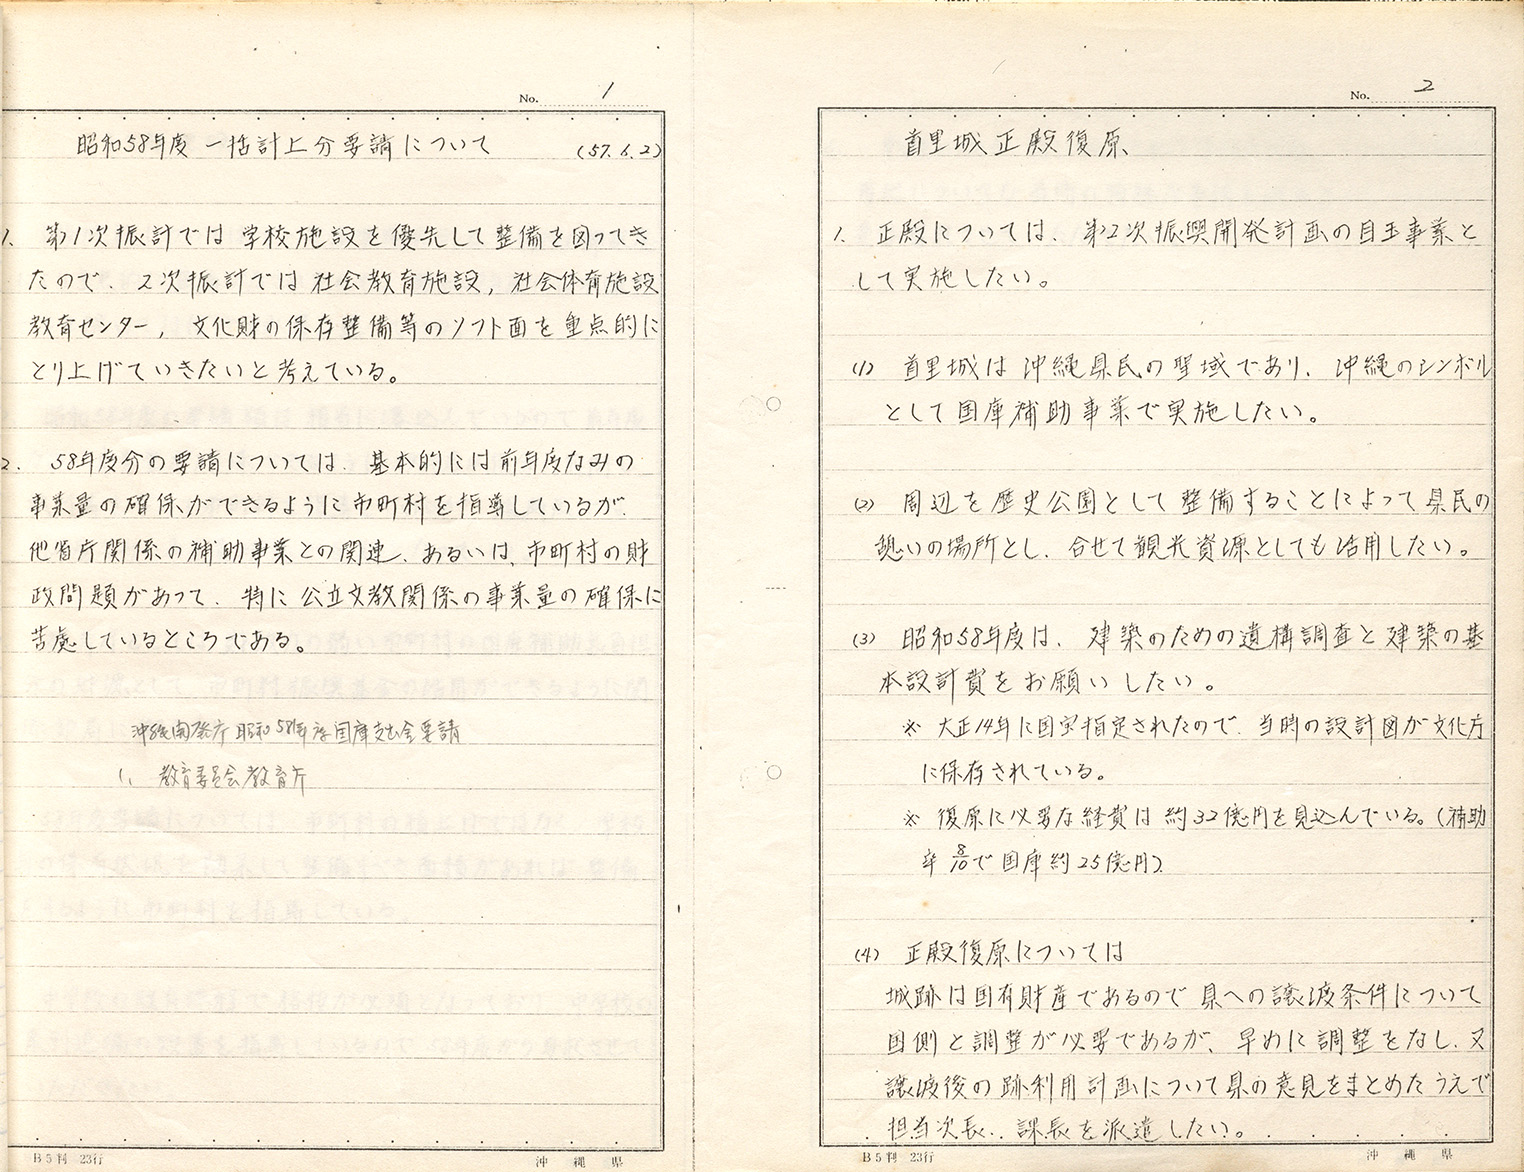 No. 1
昭和58年度 一括計上分要請について (57.6.2)
1. 第1次振計では学校施設を優先して整備を図ってき
たので、2次振計では社会教育施設, 社会体育施設
教育センター, 文化財の保存整備等のソフト面を重点的に
とり上げていきたいと考えている。
2. 58年度分の要請については、基本的には前年度なみの
事業量の確保ができるように市町村を指導しているが、
他省庁関係の補助事業との関連、あるいは、市町村の財
政問題があって、特に公立文教関係の事業量の確保に
苦慮しているところである。
沖縄開発庁昭和58年度国庫支出金要請
1. 教育委員会教育庁
B5判 23行
沖縄県
No. 2
首里城正殿復原
1. 正殿については、第2次振興開発計画の目玉事業と
して実施したい。
(1) 首里城は沖縄県民の聖域であり、沖縄のシンボル
として国庫補助事業で実施したい。
(2) 周辺を歴史公園として整備することによって県民の
憩いの場所とし、合せて観光資源としても活用したい。
(3) 昭和58年度は、建築のための遺構調査と建築の基
本設計費をお願いしたい。
※ 大正14年に国宝指定されたので、当時の設計図が文化庁
に保存されている。
※ 復原に必要な経費は約32億円を見込んでいる。(補助
率8/10で国庫約25億円)
(4) 正殿復原については
城跡は国有財産であるので県への譲渡条件について
国側と調整が必要であるが、早めに調整をなし、又
譲渡後の跡利用計画について県の意見をまとめたうえで
担当次長、課長を派遣したい。
B5判 23行
沖縄県